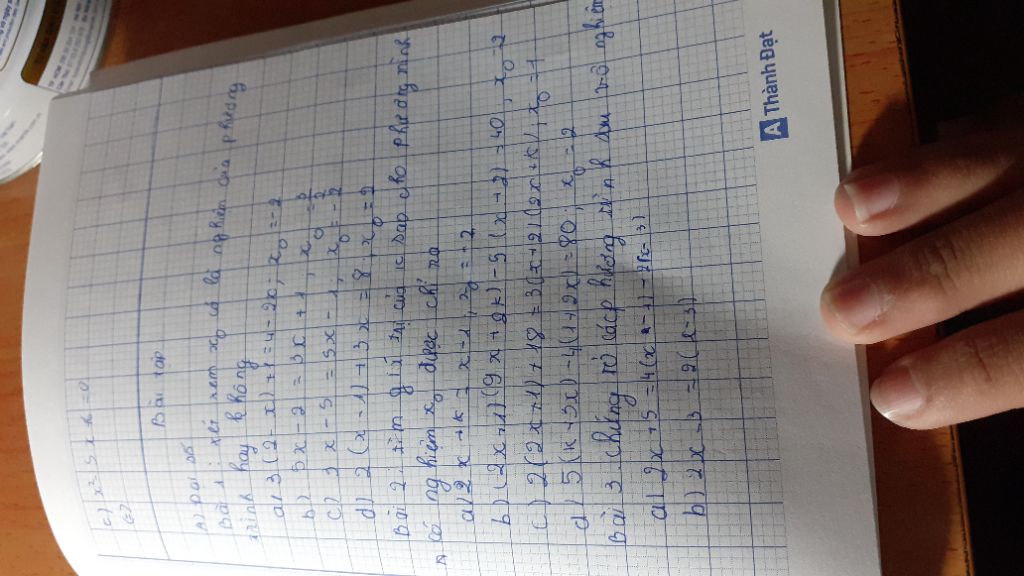 c) x² 5x + 6 = 0
Bài tập
A) Đại số
Bài 1: xét xem x₀ có là nghiệm của phương
trình hay không
a) 3(2-x)+1=4-2x; x₀=-2
b) 5x-2=3x+1; x₀=3/2
c) 3x-5=5x-1; x₀=-2
d) 2(x-1)+3x=8; x₀=2
Bài 2. tìm giá trị của k sao cho phương trình
có nghiệm x₀ được chỉ ra
a) 2x+k=x-1; x₀=-2
b) (2x+1)(9x+2k)-5(x+2)=40, x₀=2
c) 2(2x+1)+18=3(x+2)(2x+k), x₀=1
d) 5(k+3x)-4(1+2x)=80, x₀=2
Bài 3. Chứng tỏ các phương trình sau vô nghiệm
a) 2x+5=4(x-1)-2(x-3)
b) 2x-3=2(x-3)
A Thành Đạt